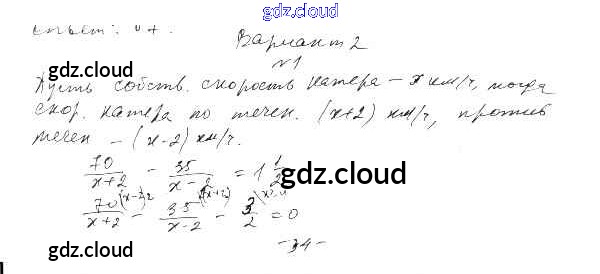 gdz.cloud
Ответ: 4 ч.
gdz.cloud
Вариант 2
№1
gdz.cloud
Пусть собств. скорость катера – x км/ч, тогда
скор. катера по течен. (x+2) км/ч, против
течен – (x-2) км/ч.
70/(x+2) - 35/(x-2) = 1 1/2
gdz.cloud
70/(x+2) - 35/(x-2) - 3/2 = 0
gdz.cloud
-34-
gdz.cloud